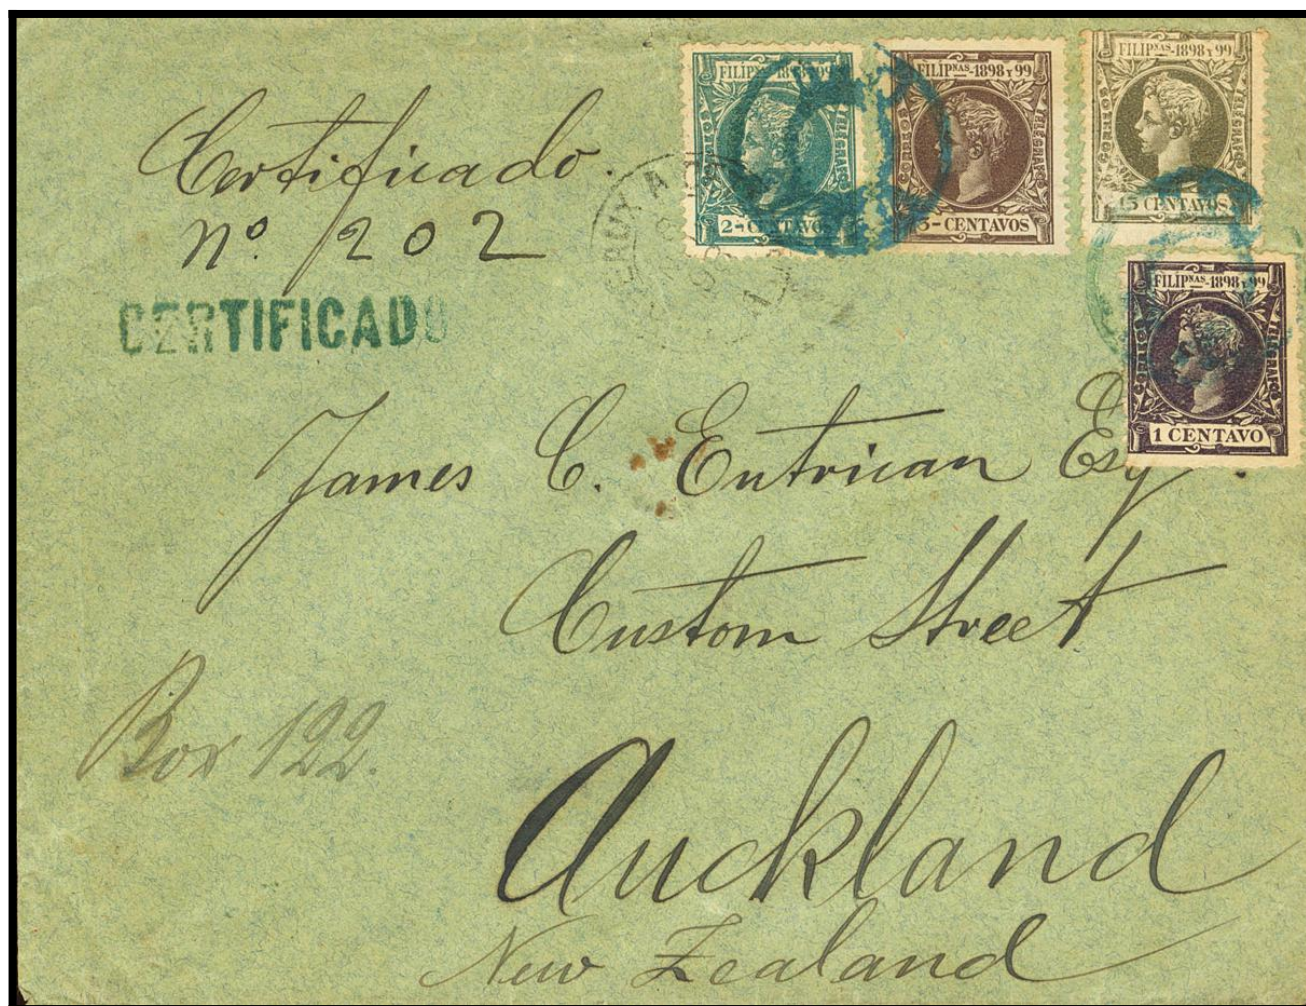 Certificado.
nº. 202
CERTIFICADO
FILIPNAS-1898 Y 99
2-CENTAVOS
FILIPNAS-1898 Y 99
CORREOS
TELEGRAFOS
3-CENTAVOS
FILIPNAS-1898 Y 99
CORREOS
TELEGRAFOS
15 CENTAVOS
FILIPNAS-1898 Y 99
CORREOS
TELEGRAFOS
1 CENTAVO
James C. Entrican Esq.
Custom Street
Box 122.
Auckland
New Zealand